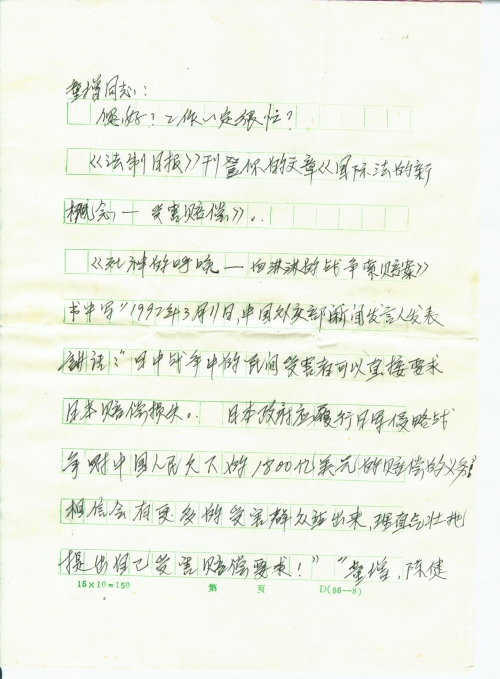 童增同志：
您好？工作一定很忙？
《法制日报》刊登你的文章《国际法的新
概念——受害赔偿》。
《死神的呼唤——血淋淋的战争索赔案》
书中写"1992年3月11日，中国外交部新闻发言人发表
讲话："日中战争中的民间受害者可以直接要求
日本赔偿损失。日本政府应履行日军侵略战
争时中国人民欠下的1800亿美元的赔偿的义务！
相信会有更多的受害群众站出来，理直气壮地
提出自己受害赔偿要求！""童增，陈健
15×10=150 第 页 D(86—8)